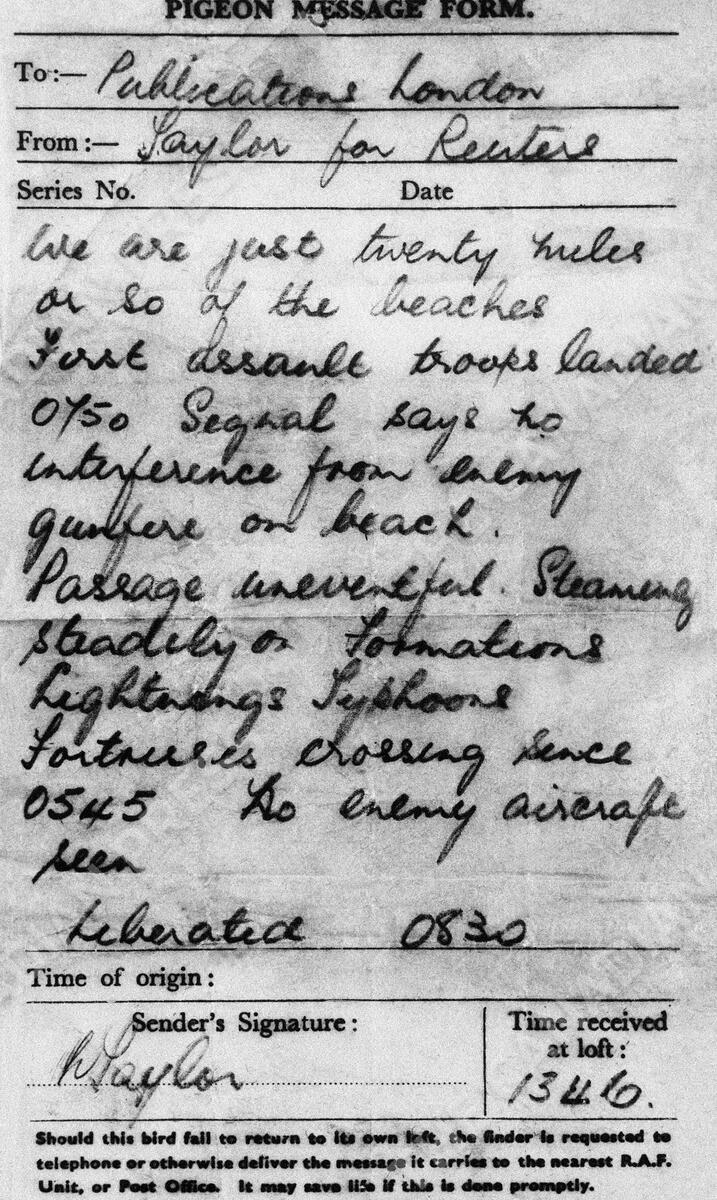 PIGEON MESSAGE FORM.
To:— Publications London
From:— Taylor for Reuters
Series No. Date
We are just twenty miles
or so of the beaches
First assault troops landed
0750 Signal says no
interference from enemy
gunfire on beach.
Passage uneventful. Steaming
steadily on Formations
Lightnings Typhoons
Fortresses crossing since
0545 No enemy aircraft
seen
Liberated 0830
Time of origin:
Sender's Signature: Time received
at loft:
Taylor 1346.
Should this bird fail to return to its own loft, the finder is requested to
telephone or otherwise deliver the message it carries to the nearest R.A.F.
Unit, or Post Office. It may save life if this is done promptly.